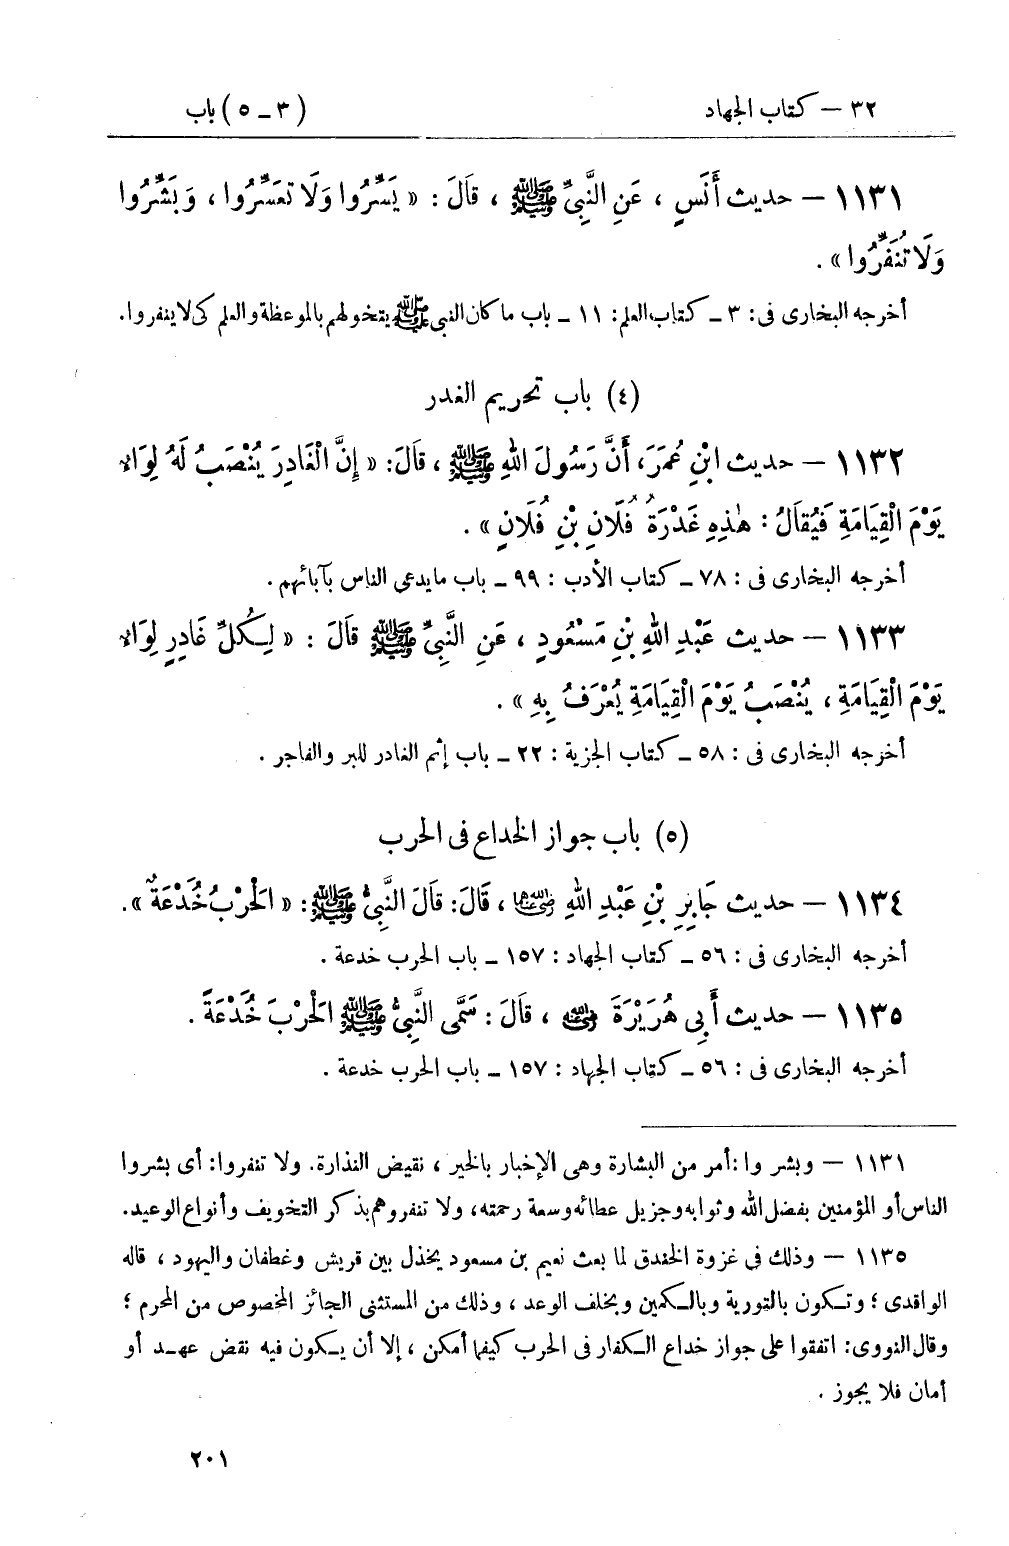 ٣٢ – كتاب الجهاد (٣ – ٥) باب
١١٣١ – حديث أَنَسٍ ، عَنِ النَّبِيِّ ﷺ ، قَالَ : « يَسِّرُوا وَلَا تُعَسِّرُوا ، وَبَشِّرُوا
وَلَا تُنَفِّرُوا » .
أخرجه البخارى فى : ٣ – كتاب العلم : ١١ – باب ما كان النبى ﷺ يتخولهم بالموعظة والعلم كى لا ينفروا .
(٤) باب تحريم الغدر
١١٣٢ – حديث ابْنِ عُمَرَ ، أَنَّ رَسُولَ اللهِ ﷺ ، قَالَ : « إِنَّ الْغَادِرَ يُنْصَبُ لَهُ لِوَاءٌ
يَوْمَ الْقِيَامَةِ فَيُقَالُ : هٰذِهِ غَدْرَةُ فُلَانِ بْنِ فُلَانٍ » .
أخرجه البخارى فى : ٧٨ – كتاب الأدب : ٩٩ – باب ما يدعى الناس بآبائهم .
١١٣٣ – حديث عَبْدِ اللهِ بْنِ مَسْعُودٍ ، عَنِ النَّبِيِّ ﷺ قَالَ : « لِكُلِّ غَادِرٍ لِوَاءٌ
يَوْمَ الْقِيَامَةِ ، يُنْصَبُ يَوْمَ الْقِيَامَةِ يُعْرَفُ بِهِ » .
أخرجه البخارى فى : ٥٨ – كتاب الجزية : ٢٢ – باب إثم الغادر للبر والفاجر .
(٥) باب جواز الخداع فى الحرب
١١٣٤ – حديث جَابِرِ بْنِ عَبْدِ اللهِ رضي الله عنهما ، قَالَ : قَالَ النَّبِيُّ ﷺ : « الْحَرْبُ خُدْعَةٌ » .
أخرجه البخارى فى : ٥٦ – كتاب الجهاد : ١٥٧ – باب الحرب خدعة .
١١٣٥ – حديث أَبِي هُرَيْرَةَ رضي الله عنه ، قَالَ : سَمَّى النَّبِيُّ ﷺ الْحَرْبَ خُدْعَةً .
أخرجه البخارى فى : ٥٦ – كتاب الجهاد : ١٥٧ – باب الحرب خدعة .
١١٣١ – وبشروا : أمر من البشارة وهى الإخبار بالخير ، نقيض النذارة . ولا تنفروا : أى بشروا
الناس أو المؤمنين بفضل الله وثوابه وجزيل عطائه وسعة رحمته ، ولا تنفروهم بذكر التخويف وأنواع الوعيد .
١١٣٥ – وذلك في غزوة الخندق لما بعث نعيم بن مسعود يخذل بين قريش وغطفان واليهود ، قاله
الواقدى ؛ وتكون بالتورية وبالكمين وبخلف الوعد ، وذلك من المستثنى الجائز المخصوص من المحرم ؛
وقال النووى : اتفقوا على جواز خداع الكفار فى الحرب كيفما أمكن ، إلا أن يكون فيه نقض عهد أو
أمان فلا يجوز .
٢٠١